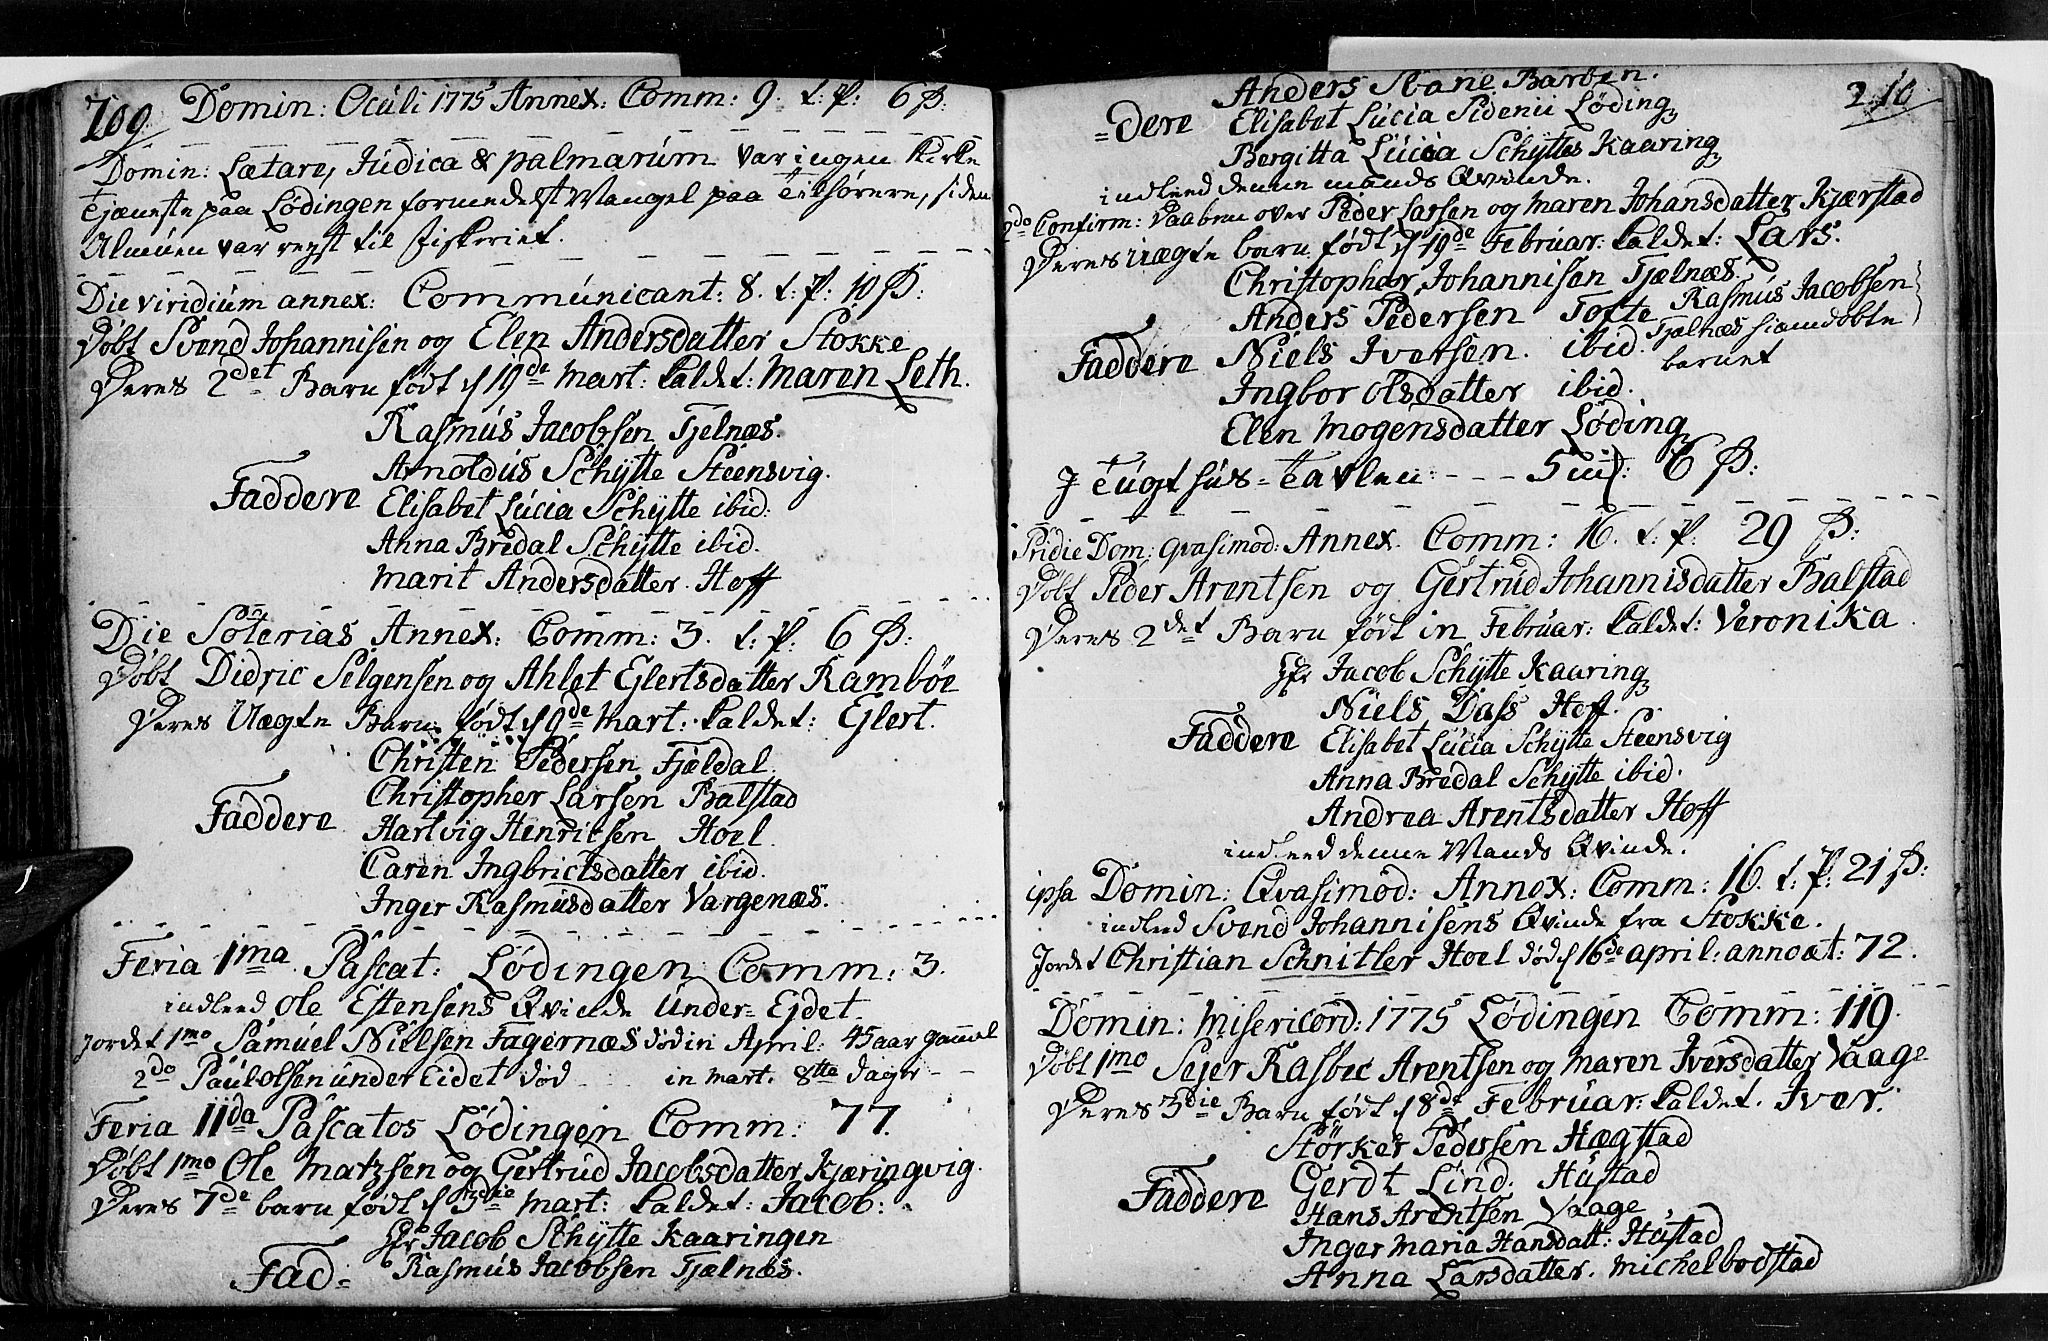 209
Domin: Oculi 1775 Annex: Comm: 9. t: P: 6 ß:
Domin: Lætare, Judica & palmarum var ingen Kirke
Tjæneste paa Lødingen formedelst Mangel paa Tilhørere, siden
Almuen var reyst til fiskeriet.
Die viridium annex: Communicant: 8. t: P: 10 ß:
Døbt Svend Johannisen og Elen Andersdatter Stokke
Deres 2det Barn født d 19de Mart: kaldet: Maren Leth.
Rasmus Jacobsen Tjelnæs.
Arnoldus Schytte Steensvig.
Faddere Elisabet Lucia Schytte ibid:
Anna Bredal Schytte ibid.
Marit Andersdatter Hoff
Die Soterias Annex: Comm: 3. t: P: 6 ß:
Døbt Didric Selgensen og Ahlet Ejlertsdatter Rambøe
Deres Uægte Barn født d 9de Mart: kaldet: Ejlert.
Christen Pedersen Fjældal
Christopher Larsen Balstad
Faddere Hartvig Henricsen Hoel
Caren Ingbrictsdatter ibid.
Inger Rasmusdatter Vargenæs.
Feria 1ma Pascat: Lødingen Comm: 3.
indleed Ole Estensens Qvinde Under-Ejdet.
Jordet 1mo Samuel Nielsen Fagernæs død in April: 45 aar gammel
2do Paul Olsen under Eidet død in mart. 8tte dager
Feria IIda Pascatos Lødingen Comm: 77.
Døbt 1mo Ole Matzsen og Gertrud Jacobsdatter Kjæringvig.
Deres 7de barn født d 3die mart: kaldet: Jacob:
Hr Jacob Schytte Kaaringen
Fad- Rasmus Jacobsen Tjælnæs.
210
Anders Roane Barøen.
-dere Elisabet Lucia Sidenii Løding
Bergitta Lucia Schyttes Kaaring
indleed denne mands Qvinde.
2do Confirm: Daaben over Peder Larsen og Maren Johansdatter Kjærstad
Deres uægte barn født d 19de Februar: kaldet: Lars.
Christopher Johannisen Tjælnæs
Anders Pedersen Tofte
Rasmus Jacobsen
Tjælnæs hiemdøbte
barnet
Faddere Niels Iversen. ibid.
Ingbor Olsdatter ibid.
Elen Mogensdatter Løding
J Tugthus-Tavlen: - - - 5 mk: 6 ß:
Pridie Dom: Qvasimod: Annex. Comm: 16. t. P. 29 ß:
Døbt Peder Arentsen og Gertrud Johannisdatter Balstad
Deres 2det Barn født in Februar: kaldet: Veronika.
Hr Jacob Schytte Kaaring
Niels Dass Hoff.
Faddere Elisabet Lucia Schytte Steensvig
Anna Bredal Schytte ibid.
Andrea Arentsdatter Hoff
indleed denne Mands Qvinde.
ipsa Domin: Qvasimod: Annex: Comm: 16. t: P: 21 ß:
indleed Svend Johannisens Qvinde fra Stokke.
Jordet Christian Schnitler Hoel død d 16de april: anno æt: 72.
Domin: Misericord: 1775 Lødingen Comm: 119.
Døbt 1mo Sejer Rasbec Arentsen og Maren Iversdatter Vaage
Deres 3die Barn født d 8de Februar: kaldet. Iver.
Størker Pedersen Hægstad
Gerdt Lind. Hustad
Faddere Hans Arentsen Vaage
Inger Maria Hansdatt: Hustad
Anna Larsdatter. Michelbodstad